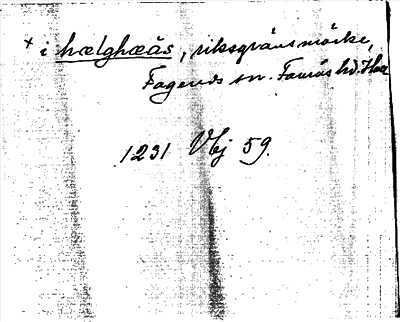 + i hælghæās, riksgränsmärke,
Fagereds sn. Faurås hd. Hall
1231 Vbj 59.